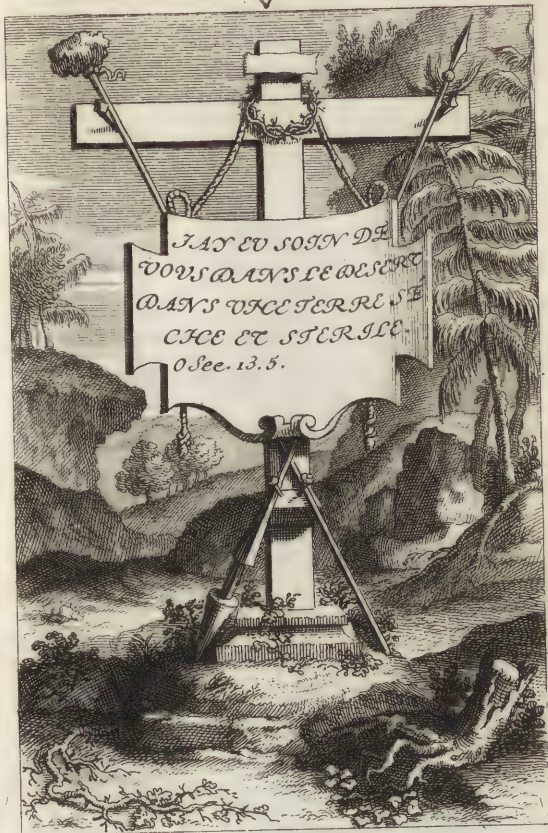 JAY EV SOIN DE
VOVS DANS LE DESERT
DANS VNE TERRE SE
CHE ET STERILE.
OSee. 13. 5.